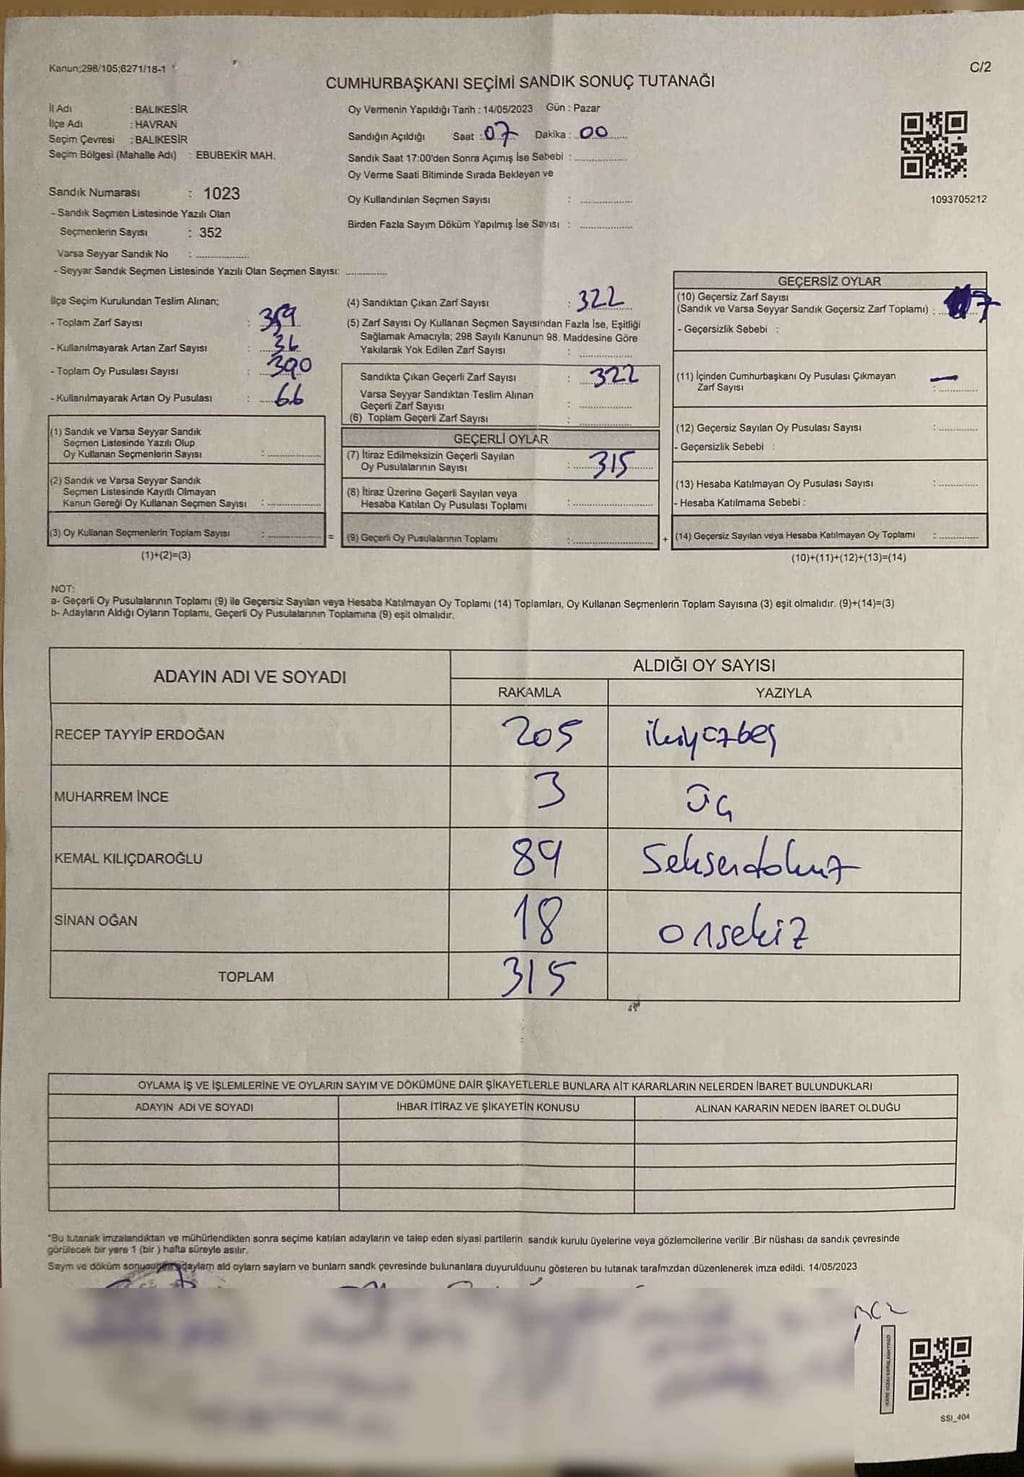 Kanun;298/105;6271/18-1
C/2
CUMHURBAŞKANI SEÇİMİ SANDIK SONUÇ TUTANAĞI
İl Adı : BALIKESİR
İlçe Adı : HAVRAN
Seçim Çevresi : BALIKESİR
Seçim Bölgesi (Mahalle Adı) : EBUBEKİR MAH.
Sandık Numarası : 1023
- Sandık Seçmen Listesinde Yazılı Olan
Seçmenlerin Sayısı : 352
Varsa Seyyar Sandık No : ................
- Seyyar Sandık Seçmen Listesinde Yazılı Olan Seçmen Sayısı: ............
Oy Vermenin Yapıldığı Tarih : 14/05/2023 Gün : Pazar
Sandığın Açıldığı Saat : 07 Dakika : 00
Sandık Saat 17:00'den Sonra Açımış İse Sebebi : ................
Oy Verme Saati Bitiminde Sırada Bekleyen ve
Oy Kullandırılan Seçmen Sayısı : ................
Birden Fazla Sayım Döküm Yapılmış İse Sayısı : ................
1093705212
İlçe Seçim Kurulundan Teslim Alınan;
- Toplam Zarf Sayısı :
- Kullanılmayarak Artan Zarf Sayısı :
- Toplam Oy Pusulası Sayısı : 390
- Kullanılmayarak Artan Oy Pusulası : 66
(1) Sandık ve Varsa Seyyar Sandık
Seçmen Listesinde Yazılı Olup
Oy Kullanan Seçmenlerin Sayısı : ................
(2) Sandık ve Varsa Seyyar Sandık
Seçmen Listesinde Kayıtlı Olmayan
Kanun Gereği Oy Kullanan Seçmen Sayısı : ................
(3) Oy Kullanan Seçmenlerin Toplam Sayısı : ................
(1)+(2)=(3)
=
(4) Sandıktan Çıkan Zarf Sayısı : 322
(5) Zarf Sayısı Oy Kullanan Seçmen Sayısından Fazla İse, Eşitliği
Sağlamak Amacıyla; 298 Sayılı Kanunun 98. Maddesine Göre
Yakılarak Yok Edilen Zarf Sayısı : ................
Sandıkta Çıkan Geçerli Zarf Sayısı : 322
Varsa Seyyar Sandıktan Teslim Alınan
Geçerli Zarf Sayısı : ................
(6) Toplam Geçerli Zarf Sayısı : ................
GEÇERLİ OYLAR
(7) İtiraz Edilmeksizin Geçerli Sayılan
Oy Pusulalarının Sayısı : 315
(8) İtiraz Üzerine Geçerli Sayılan veya
Hesaba Katılan Oy Pusulası Toplamı : ................
(9) Geçerli Oy Pusulalarının Toplamı : ................
+
GEÇERSİZ OYLAR
(10) Geçersiz Zarf Sayısı
(Sandık ve Varsa Seyyar Sandık Geçersiz Zarf Toplamı) : 7
- Geçersizlik Sebebi :
(11) İçinden Cumhurbaşkanı Oy Pusulası Çıkmayan
Zarf Sayısı : —
(12) Geçersiz Sayılan Oy Pusulası Sayısı : ............
- Geçersizlik Sebebi :
(13) Hesaba Katılmayan Oy Pusulası Sayısı : ............
- Hesaba Katılmama Sebebi :
(14) Geçersiz Sayılan veya Hesaba Katılmayan Oy Toplamı : ............
(10)+(11)+(12)+(13)=(14)
NOT:
a- Geçerli Oy Pusulalarının Toplamı (9) ile Geçersiz Sayılan veya Hesaba Katılmayan Oy Toplamı (14) Toplamları, Oy Kullanan Seçmenlerin Toplam Sayısına (3) eşit olmalıdır. (9)+(14)=(3)
b- Adayların Aldığı Oyların Toplamı, Geçerli Oy Pusulalarının Toplamına (9) eşit olmalıdır.
ADAYIN ADI VE SOYADI
ALDIĞI OY SAYISI
RAKAMLA YAZIYLA
RECEP TAYYİP ERDOĞAN 205 ikiyüzbeş
MUHARREM İNCE 3 üç
KEMAL KILIÇDAROĞLU 89 Seksendokuz
SİNAN OĞAN 18 onsekiz
TOPLAM 315
OYLAMA İŞ VE İŞLEMLERİNE VE OYLARIN SAYIM VE DÖKÜMÜNE DAİR ŞİKAYETLERLE BUNLARA AİT KARARLARIN NELERDEN İBARET BULUNDUKLARI
ADAYIN ADI VE SOYADI İHBAR İTİRAZ VE ŞİKAYETİN KONUSU ALINAN KARARIN NEDEN İBARET OLDUĞU
"Bu tutanak imzalandıktan ve mühürlendikten sonra seçime katılan adayların ve talep eden siyasi partilerin sandık kurulu üyelerine veya gözlemcilerine verilir .Bir nüshası da sandık çevresinde
görülecek bir yere 1 (bir ) hafta süreyle asılır.
Sayım ve döküm ald oylarn saylarn ve bunlarn sandk çevresinde bulunanlara duyurulduunu gösteren bu tutanak tarafmzdan düzenlenerek imza edildi. 14/05/2023
SSI_404